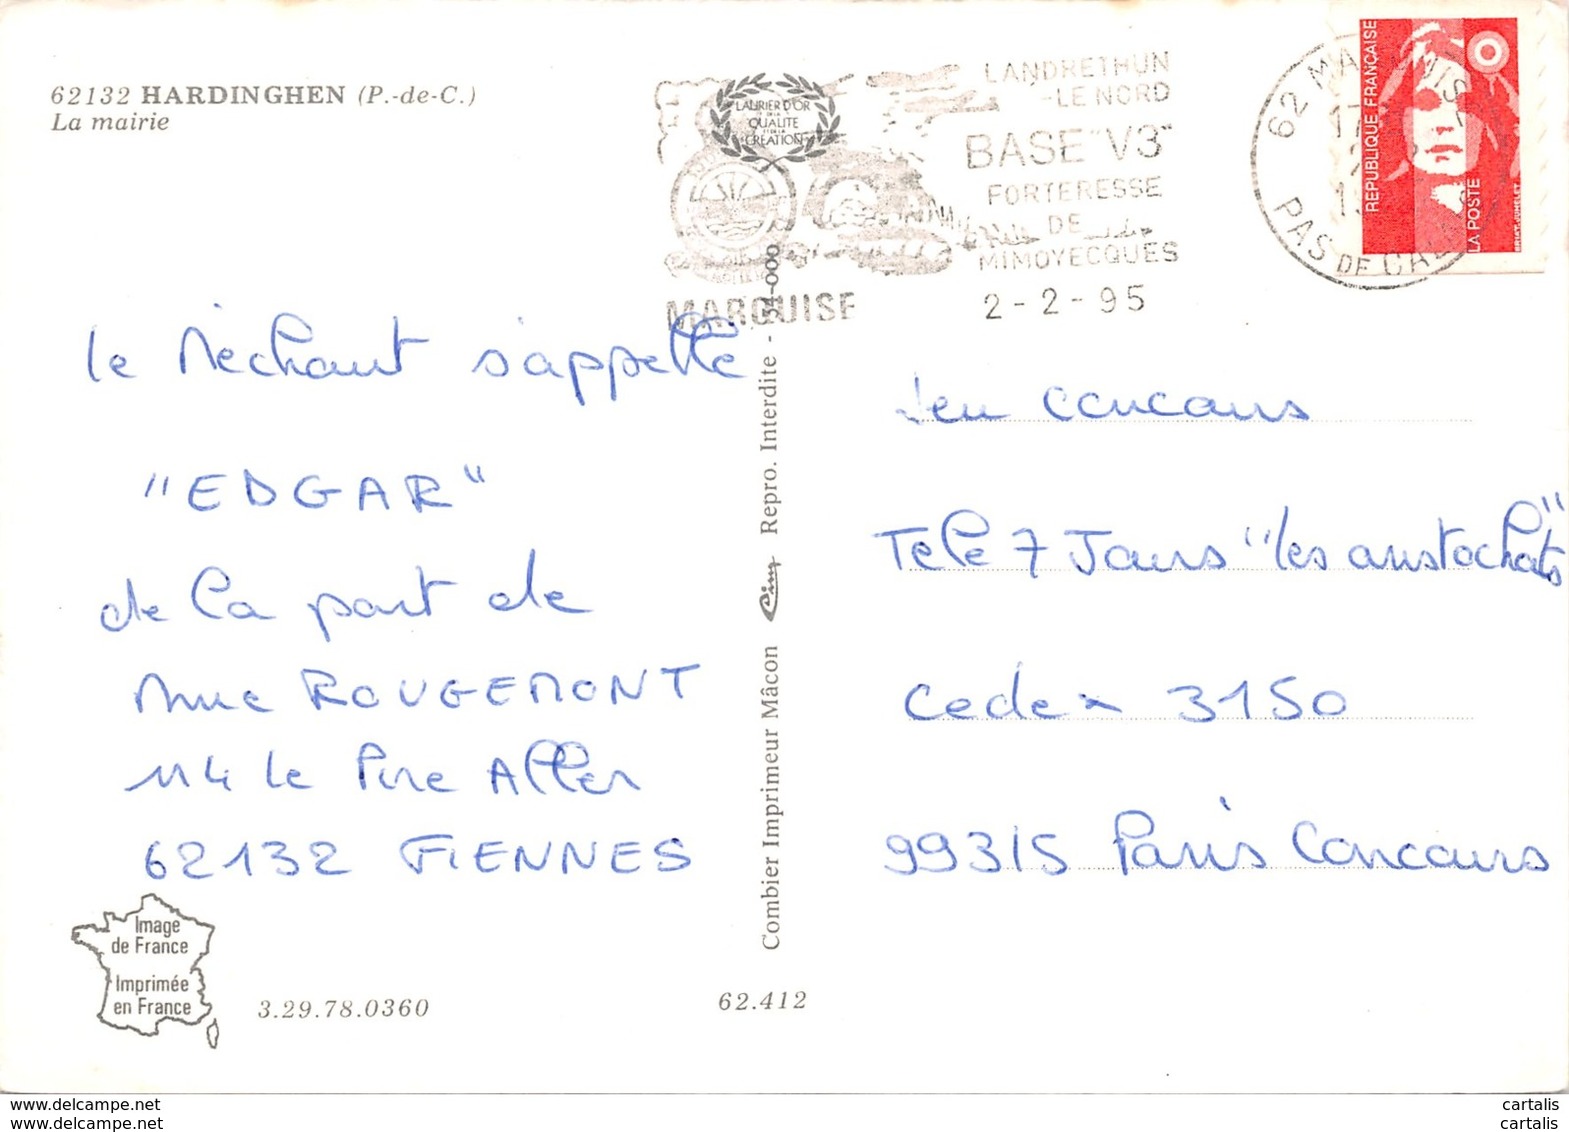 62132 HARDINGHEN (P.-de-C.)
La mairie
LAURIER D'OR
DE LA
QUALITÉ
ET DE LA
CRÉATION
MARQUISE
LANDRETHUN
-LE NORD
BASE "V3"
FORTERESSE
DE
MIMOYECQUES
2-2-95
62 MARQUISE
PAS DE CALAIS
REPUBLIQUE FRANÇAISE
LA POSTE
le Méchant s'appelle
"EDGAR"
de la part de
Mme ROUGEMONT
114 le Pire Aller
62132 FIENNES
Jeu concours
Tele 7 Jours "les aristochats"
Cedex 3150
99315 Paris Concours
Combier Imprimeur Mâcon Cim Repro. Interdite - 54-000
Image
de France
Imprimée
en France
3.29.78.0360
62.412
www.delcampe.com
www.delcampe.net
cartalis
cartalis